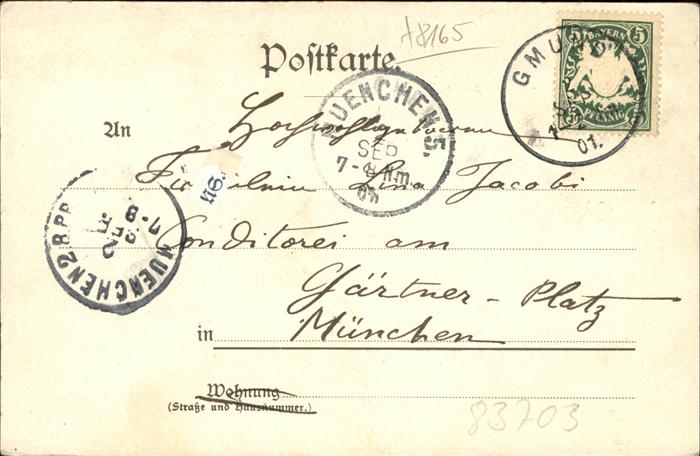 +8165
Postkarte.
BAYERN
5 5
5 5
PFENNIG
GMUND
SEP
01.
MUENCHEN 5.
SEP
7-8 Nm.
An Hochwohlgeboren
Fräulein Lina Jacobi
Conditorei am
MUENCHEN 2 B.P.
2
SEP
7-8
Gärtner-Platz
in München
Wohnung
(Straße und Hausnummer.)
83703